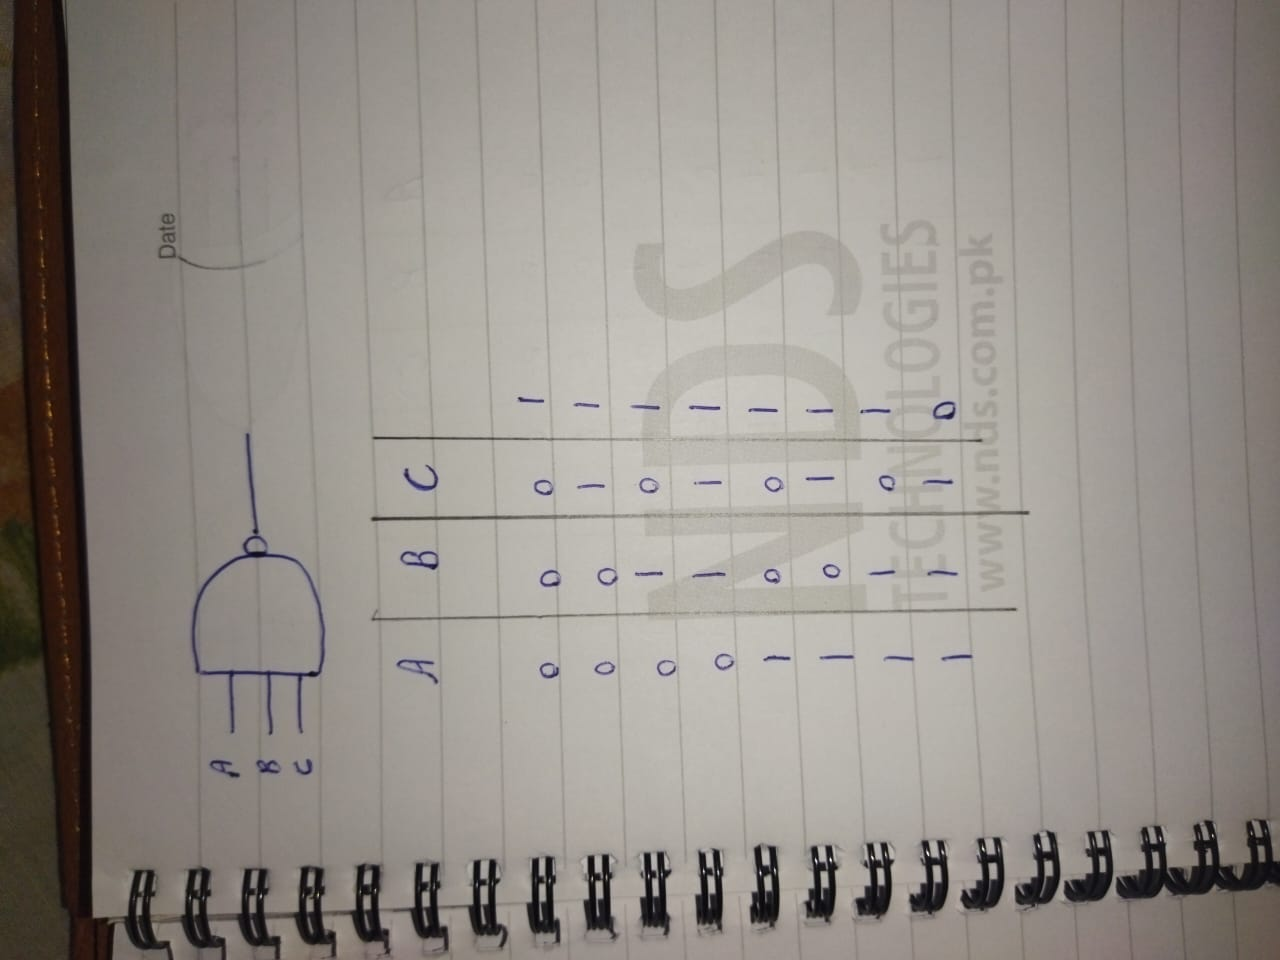 Date
A
B
C
A B C
0 0 0 1
0 0 1 1
0 1 0 1
0 1 1 1
1 0 0 1
1 0 1 1
1 1 0 1
1 1 1 0
NDS
TECHNOLOGIES
www.nds.com.pk